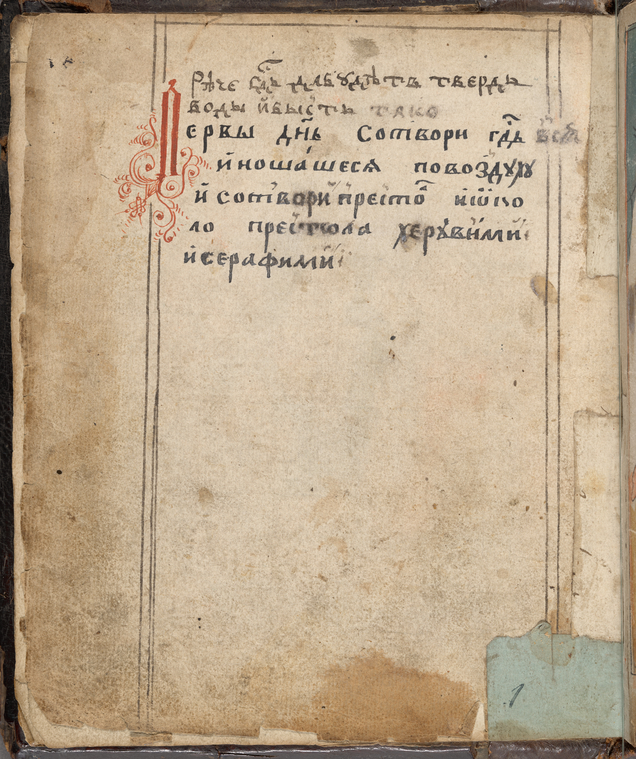 Рѣче гдⷭ҇ь да будѣтъ тверды
воды и҆ бысть тако
Первы дн҃ь сотвори гдⷭ҇ь всѧ
и҆ ношашесѧ по воздуху
и҆ сотвори престоⷧ҇ и҆ ѡ҆ко
ло престола херувими
и҆ серафими
1